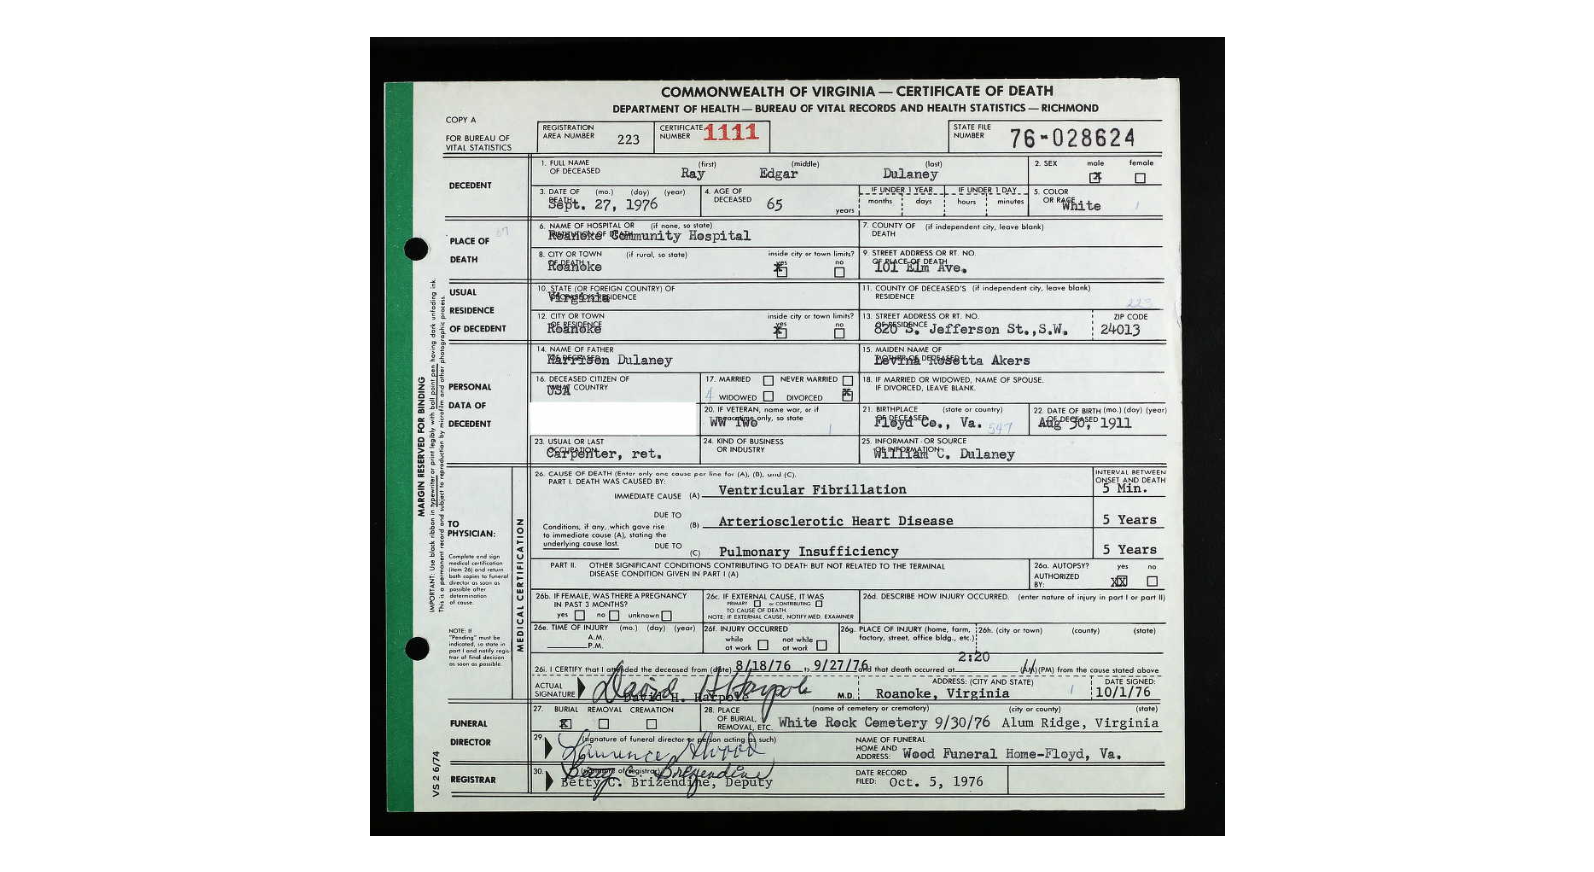 COMMONWEALTH OF VIRGINIA — CERTIFICATE OF DEATH
DEPARTMENT OF HEALTH — BUREAU OF VITAL RECORDS AND HEALTH STATISTICS — RICHMOND
COPY A
FOR BUREAU OF VITAL STATISTICS
REGISTRATION AREA NUMBER 223
CERTIFICATE NUMBER 1111
STATE FILE NUMBER 76-028624
DECEDENT
1. FULL NAME OF DECEASED (first) Ray (middle) Edgar (last) Dulaney
2. SEX male X female
3. DATE OF DEATH (mo.) (day) (year) Sept. 27, 1976
4. AGE OF DECEASED 65 years
IF UNDER 1 YEAR months days
IF UNDER 1 DAY hours minutes
5. COLOR OR RACE White
PLACE OF DEATH
6. NAME OF HOSPITAL OR INSTITUTION OF DEATH (if none, so state) Roanoke Community Hospital
7. COUNTY OF DEATH (if independent city, leave blank)
8. CITY OR TOWN OF DEATH (if rural, so state) Roanoke
inside city or town limits? yes X no
9. STREET ADDRESS OR RT. NO. OF PLACE OF DEATH 101 Elm Ave.
USUAL RESIDENCE OF DECEDENT
10. STATE (OR FOREIGN COUNTRY) OF DECEASED'S RESIDENCE Virginia
11. COUNTY OF DECEASED'S RESIDENCE (if independent city, leave blank)
223
12. CITY OR TOWN OF RESIDENCE Roanoke
inside city or town limits? yes X no
13. STREET ADDRESS OR RT. NO. OF RESIDENCE 820 S. Jefferson St.,S.W.
ZIP CODE 24013
PERSONAL DATA OF DECEDENT
14. NAME OF FATHER OF DECEASED Harrison Dulaney
15. MAIDEN NAME OF MOTHER OF DECEASED Levina Rosetta Akers
16. DECEASED CITIZEN OF WHAT COUNTRY USA
17. MARRIED NEVER MARRIED
4 WIDOWED DIVORCED X
18. IF MARRIED OR WIDOWED, NAME OF SPOUSE. IF DIVORCED, LEAVE BLANK.
20. IF VETERAN, name war, or if peacetime only, so state WW Two 1
21. BIRTHPLACE OF DECEASED (state or country) Floyd Co., Va. 547
22. DATE OF BIRTH OF DECEASED (mo.) (day) (year) Aug 30, 1911
23. USUAL OR LAST OCCUPATION Carpenter, ret.
24. KIND OF BUSINESS OR INDUSTRY
25. INFORMANT OR SOURCE OF INFORMATION William C. Dulaney
MARGIN RESERVED FOR BINDING
IMPORTANT: Use black ribbon in typewriter or print legibly with ball point pen having dark unfading ink.
This is a permanent record and subject to reproduction by microfilm and other photographic process.
TO PHYSICIAN:
Complete and sign medical certification (item 26) and return both copies to funeral director as soon as possible after determination of cause.
NOTE: If "Pending" must be indicated, so state in part I and notify registrar of final decision as soon as possible.
MEDICAL CERTIFICATION
26. CAUSE OF DEATH (Enter only one cause per line for (A), (B), and (C).
PART I. DEATH WAS CAUSED BY:
INTERVAL BETWEEN ONSET AND DEATH
IMMEDIATE CAUSE (A) Ventricular Fibrillation 5 Min.
DUE TO (B) Arteriosclerotic Heart Disease 5 Years
Conditions, if any, which gave rise to immediate cause (A), stating the underlying cause last.
DUE TO (C) Pulmonary Insufficiency 5 Years
PART II. OTHER SIGNIFICANT CONDITIONS CONTRIBUTING TO DEATH BUT NOT RELATED TO THE TERMINAL DISEASE CONDITION GIVEN IN PART I (A)
26a. AUTOPSY? yes no
AUTHORIZED BY: XX
26b. IF FEMALE, WAS THERE A PREGNANCY IN PAST 3 MONTHS?
yes no unknown
26c. IF EXTERNAL CAUSE, IT WAS
PRIMARY or CONTRIBUTING
TO CAUSE OF DEATH
NOTE: IF EXTERNAL CAUSE, NOTIFY MED. EXAMINER
26d. DESCRIBE HOW INJURY OCCURRED. (enter nature of injury in part I or part II)
26e. TIME OF INJURY (mo.) (day) (year)
A.M.
P.M.
26f. INJURY OCCURRED
while at work not while at work
26g. PLACE OF INJURY (home, farm, factory, street, office bldg., etc.)
26h. (city or town) (county) (state)
26i. I CERTIFY that I attended the deceased from (date) 8/18/76 to 9/27/76 and that death occurred at 2:20 (AM) (PM) from the cause stated above
ACTUAL SIGNATURE David H Harpole
David H. Harpole M.D.
ADDRESS: (CITY AND STATE) Roanoke, Virginia 1
DATE SIGNED: 10/1/76
FUNERAL DIRECTOR
27. BURIAL X REMOVAL CREMATION
28. PLACE OF BURIAL, REMOVAL, ETC. (name of cemetery or crematory) (city or county) (state)
White Rock Cemetery 9/30/76 Alum Ridge, Virginia
29. (signature of funeral director or person acting as such)
NAME OF FUNERAL HOME AND ADDRESS: Wood Funeral Home-Floyd, Va.
REGISTRAR
30. (signature of registrar) Betty C. Brizendine
Betty C. Brizendine, Deputy
DATE RECORD FILED: Oct. 5, 1976
VS 2 6/74